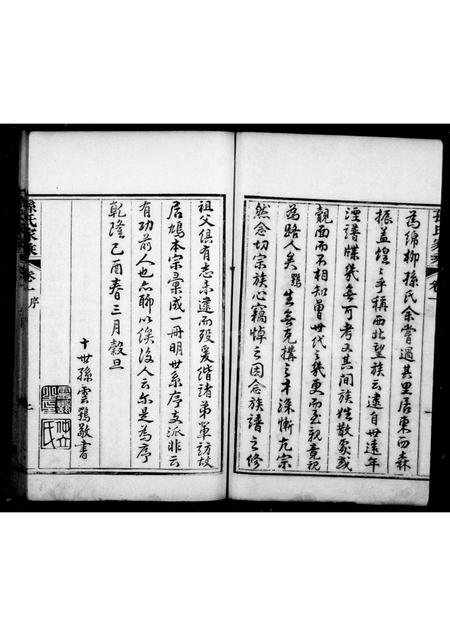 為綿柳孫氏余嘗過其里居東西森
振蓋煌々乎稱西北望族云逮自世遠年
湮譜牒幾無可考又其間族姓散處或
覿面而不相知曾世代之幾更而至親竟視
為路人矣鶚生無克構之才深慚亢宗
然念切宗族心竊悼之因念族譜之修
祖父俱有志未逮而歿爰偕諸弟輩訪故
居鳩本宗彙成一冊明世系序支派非云
有功前人也亦聊以俟後人云尔是為序
乾隆己酉春三月穀旦
十世孫雲鶚敬書
孫氏家乘
卷一
序
二
孫氏家乘
卷一